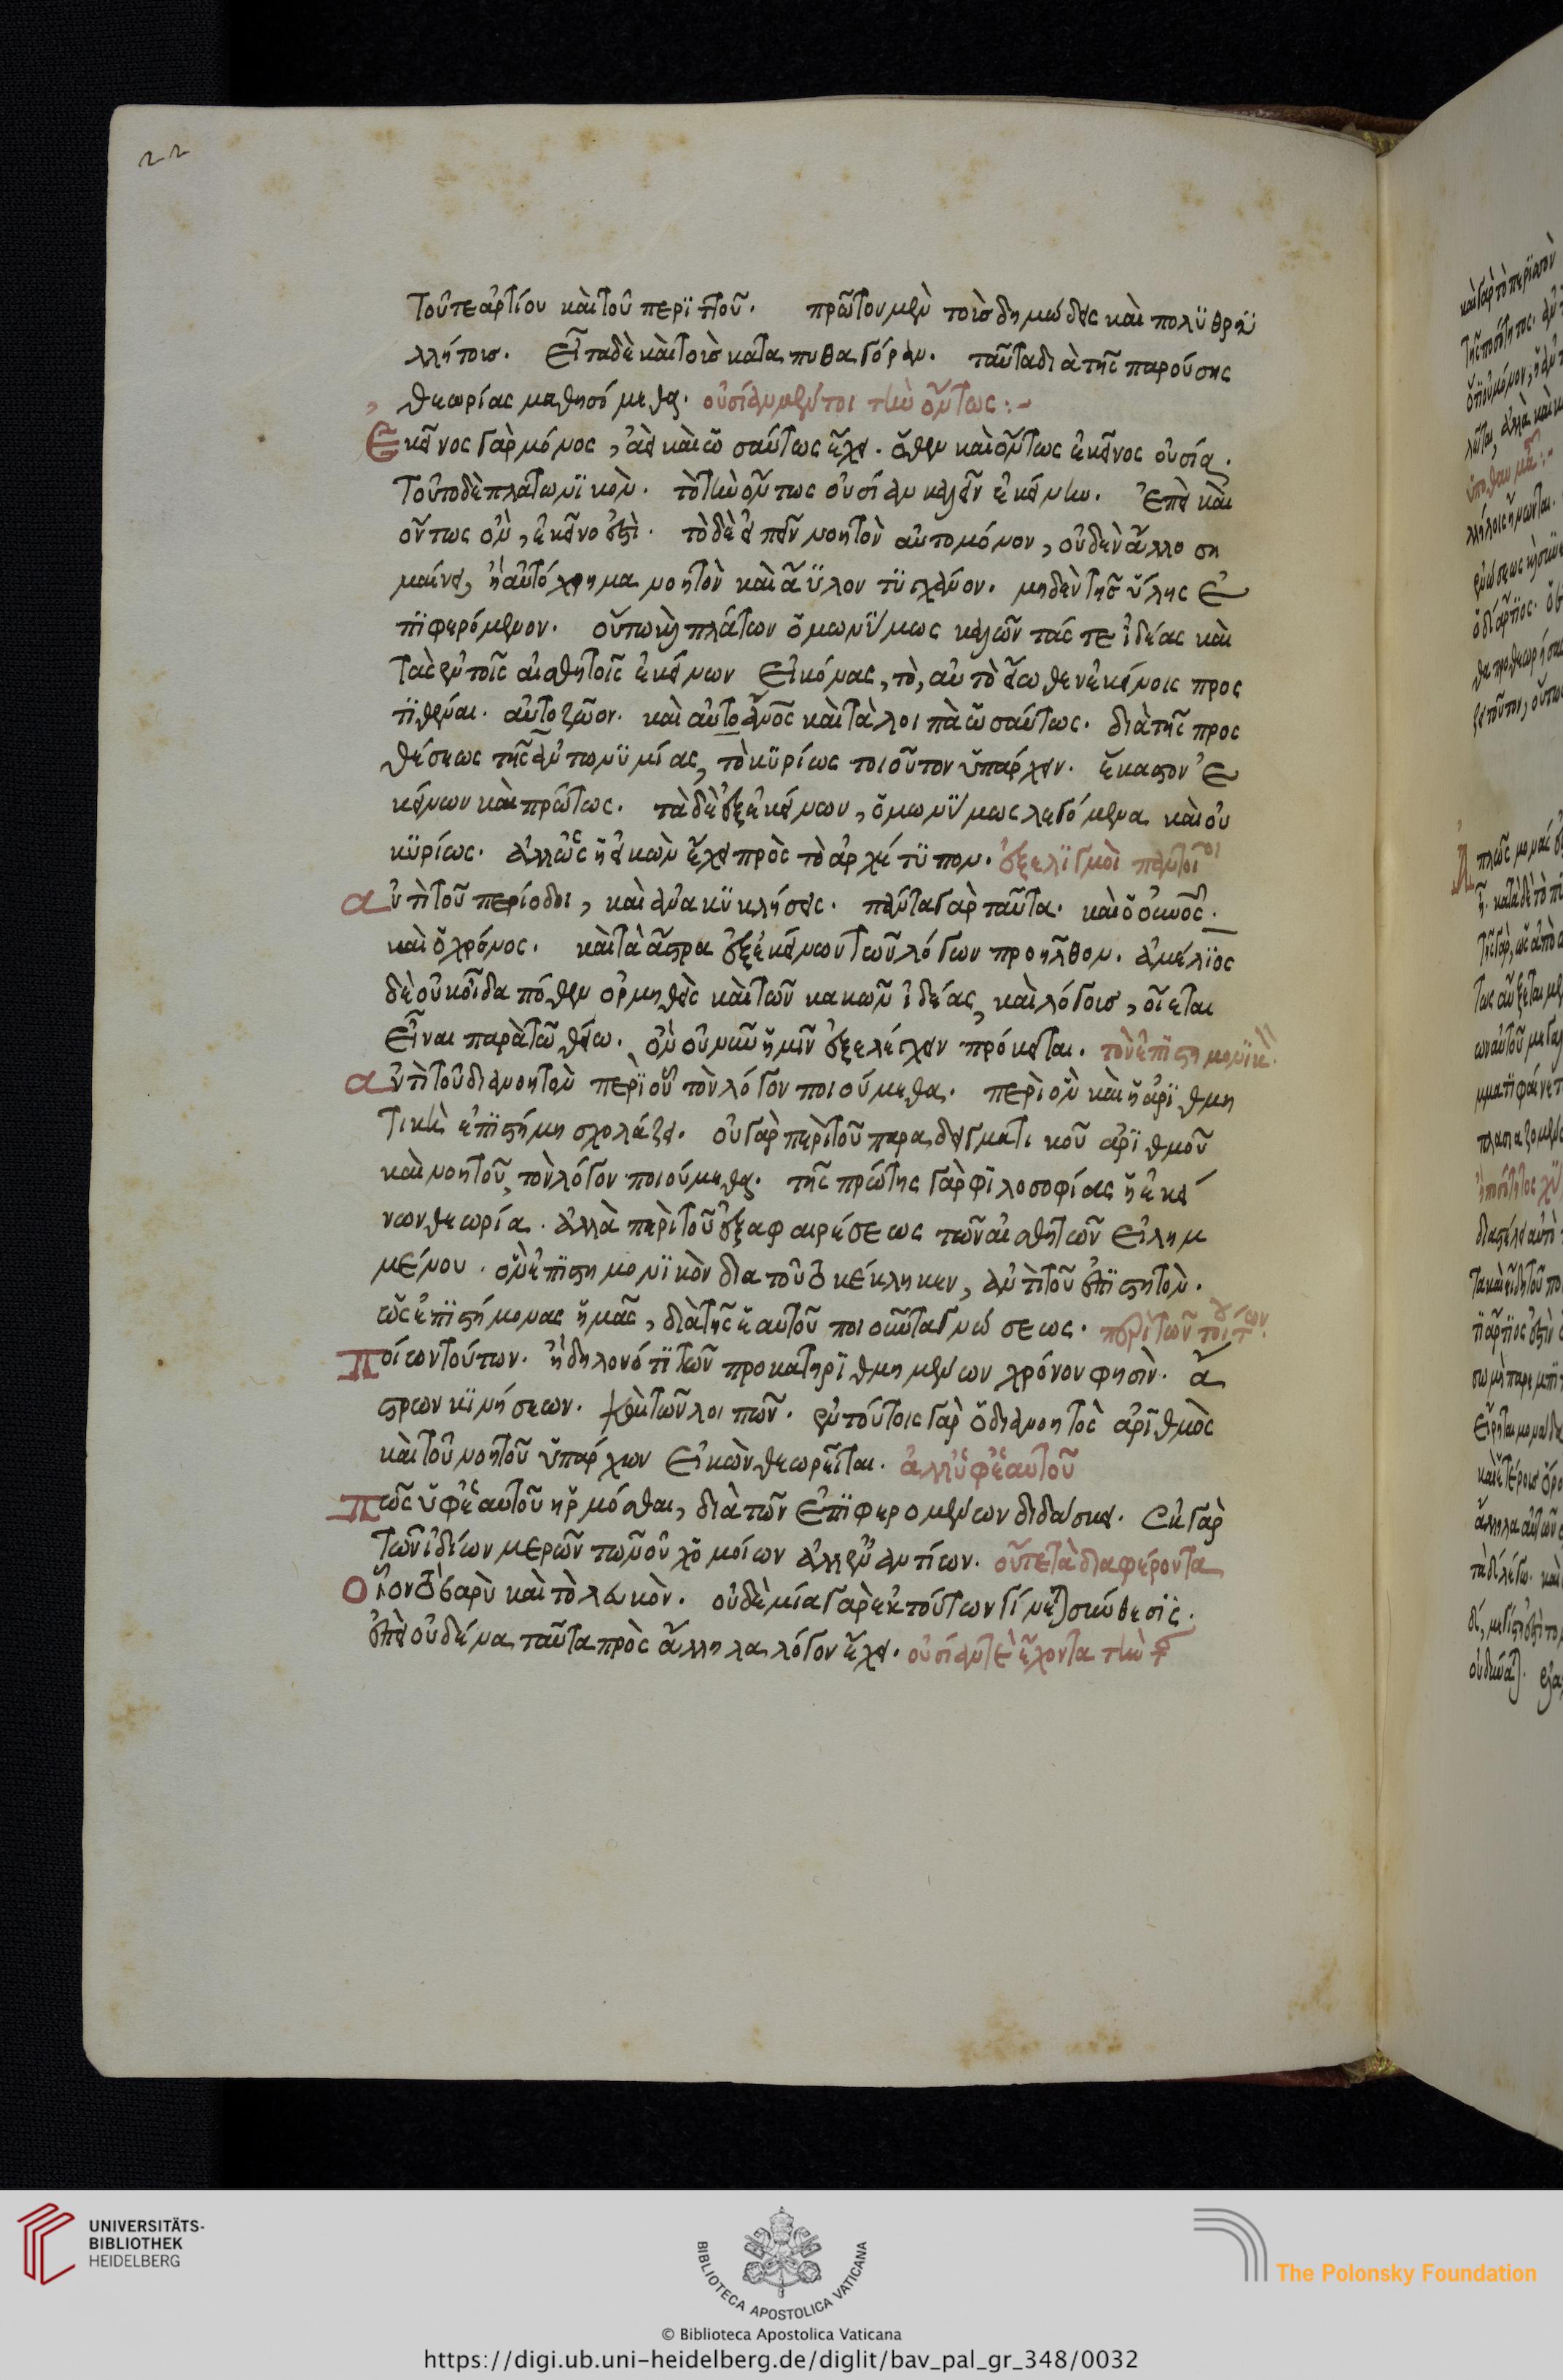 22
τοῦ τε ἀρτίου καὶ τοῦ περϊττοῦ. πρῶτον μὲν τοῖσ δημώδεσ καὶ πολϋθρϋ
λλήτοισ. Εἶτα δὲ καὶ τοῖσ κατα πυθαγόραν. ταῦτα διὰ τῆς παρούσης
θεωρίας μαθησόμεθα. οὐσίαν μέντοι τὴν ὄντως :-
Ἐκεῖνος γὰρ μόνος, ἀεὶ καὶ ὡσαύτως ἔχει. ὅθεν καὶ ὄντως ἐκεῖνος οὐσία.
Τοῦτο δὲ πλατωνϊκὸν. τὸ τὴν ὄντως οὐσίαν καλεῖν ἐκείνην. Ἐπεὶ καὶ
ὄντως ὂν, ἐκεῖνο ἐστὶ. τὸ δὲ εἰπεῖν νοητὸν αὐτο μόνον, οὐδὲν ἄλλο ση
μαίνει, ἢ αὐτόχρημα νοητὸν καὶ ἄϋλον τϋγχάνον. μηδὲν τῆς ὕλης ἐ
πϊφερόμενον. οὕτω καὶ πλάτων ὁμωνϋμως καλῶν τάς τε ἰδέας καὶ
τὰς ἐν τοῖς αἰσθητοῖς ἐκείνων Εἰκόνας, τὸ, αὐτὸ ἔσωθεν ἐκείνοις προς
τϊθέναι. αὐτοζῶον. καὶ αὐτοάνος καὶ τὰ λοιπὰ ὡσαύτως. διὰ τῆς προς
θέσεως τῆς ἀντωνϋμίας, τὸ κϋρίως τοιοῦτον ὕπάρχειν. ἕκαστον Ἐ
κείνων καὶ πρώτως. τὰ δὲ ἐξ ἐκείνων, ὁμωνϋμως λεγόμενα καὶ οὐ
κϋρίως. ἀλλ' ὡς ἡ εἰκὼν ἔχει πρὸς τὸ ἀρχέτϋπον. ἐξελϊγμοὶ παντοῖοι
αντὶ τοῦ περίοδοι, καὶ ἀνακϋκλήσεις. πάντα γὰρ ταῦτα. καὶ ὁ οὐνος.
καὶ ὁ χρόνος. καὶ τὰ ἄστρα ἐξ ἐκείνων τῶν λόγων προῆλθον. ἀμέλϊος
δὲ οὐκ οἶδα πόθεν ὁρμηθεὶς καὶ τῶν κακῶν ἰδέας, καὶ λόγοισ, οἴεται
Εἶναι παρὰ τῶ θεῶ. ὃν οὐ νῦν ἡμῖν ἐξελέγχειν πρόκειται. τὸν ἐπϊστημονϊκὸν
αντὶ τοῦ διανοητὸν περὶ οὗ τὸν λόγον ποιούμεθα. περὶ ὃν καὶ ἡ ἀρϊθμη
τικὴ ἐπϊστήμη σχολάζει. οὐ γὰρ περὶ τοῦ παραδειγματικοῦ ἀρϊθμοῦ
καὶ νοητοῦ τὸν λόγον ποιούμεθα. τῆς πρώτης γὰρ φϊλοσοφίας ἡ ἐκεί
νων θεωρία. ἀλλὰ περὶ τοῦ ἐξ αφαιρέσεως τῶν αἰσθητῶν Εἰλημ
μένου. ὃν ἐπϊστημονϊκὸν δια τοῦτο κέκληκεν, ἀντὶ τοῦ ἐπϊστητὸν.
ὡς ἐπϊστήμονας ἡμᾶς, διὰ τῆς ἑαυτοῦ ποιοῦντα γνώσεως. περὶ τῶν τοιούτων.
Ποίων τούτων. ἢ δηλονότϊ τῶν προκατηρϊθμημένων χρόνον φησὶν. ἄ
στρων κϊνήσεων. καὶ τῶν λοιπῶν. ἐν τούτοις γὰρ ὁ διανοητὸς ἀρϊθμὸς
καὶ τοῦ νοητοῦ ὕπάρχων Εἰκὼν θεωρεῖται. ἀλλ' ὑφ' ἑαυτοῦ
Πῶς ὑφ' ἑαυτοῦ ἡρμόσθαι, διὰ τῶν Ἐπϊφερομένων διδάσκει. Ἐκ γὰρ
τῶν ἰδίων μερῶν τῶν οὐχ ὁμοίων ἀλλ' ἐναντίων. οὔτε τὰ διαφέροντα
Οἷον τὸ βαρὺ καὶ τὸ λευκὸν. οὐδὲ μία γὰρ ἐκ τούτων γίνεται σύνθεσις.
ἐπεὶ οὐδένα ταῦτα πρὸς ἄλληλα λόγον ἔχει. οὐσίαν τε ἔχοντα τὴν τ
UNIVERSITÄTS-
BIBLIOTHEK
HEIDELBERG
BIBLIOTECA APOSTOLICA VATICANA
The Polonsky Foundation
© Biblioteca Apostolica Vaticana
https://digi.ub.uni-heidelberg.de/diglit/bav_pal_gr_348/0032